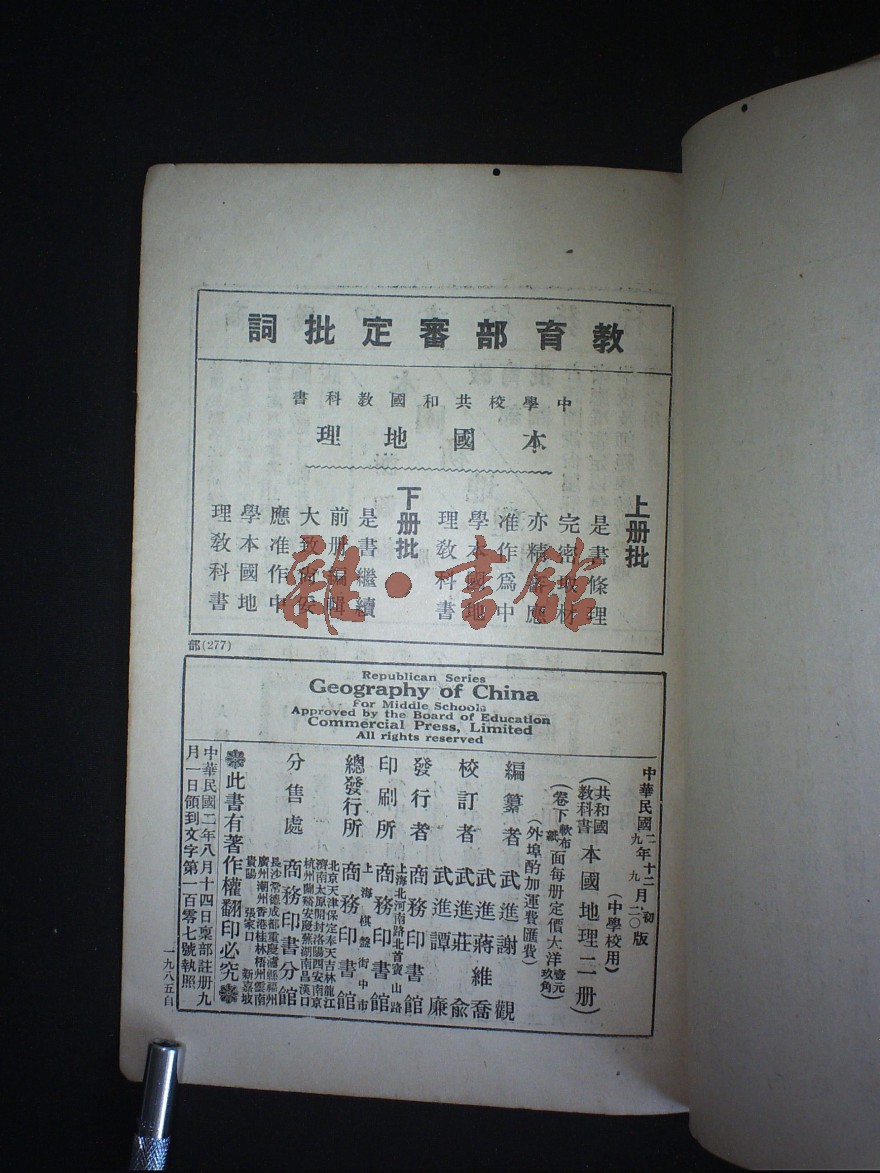 教育部審定批詞
中學校共和國教科書
本國地理
上册批
是書條理
完密取材
亦精審應
准作爲中
學本國地
理教科書
下册批
是書繼續
前册編輯
大致尚妥
應准作中
學本國地
理教科書
雜·書館
部(277)
Republican Series
Geography of China
For Middle Schools
Approved by the Board of Education
Commercial Press, Limited
All rights reserved
中華民國二年十二月初版
九年九月二〇版
(中學校用)
(共和國教科書 本國地理二册)
(卷下 軟布紙面每册定價大洋壹元玖角)
(外埠酌加運費匯費)
編纂者 武進謝觀
校訂者 武進蔣維喬
武進莊俞
武進譚廉
發行者 商務印書館
印刷所 上海北河南路北首寶山路 商務印書館
總發行所 上海棋盤街中市 商務印書館
分售處 商務印書分館
北京天津保定奉天吉林龍江
濟南太原開封洛陽西安南京
杭州蘭谿安慶蕪湖南昌漢口
長沙常德成都重慶瀘縣福州
廣州潮州香港桂林梧州雲南
貴陽 張家口 新嘉坡
此書有著作權翻印必究
中華民國二年八月十四日稟部註册九
月一日領到文字第一百零七號執照
一九八五自